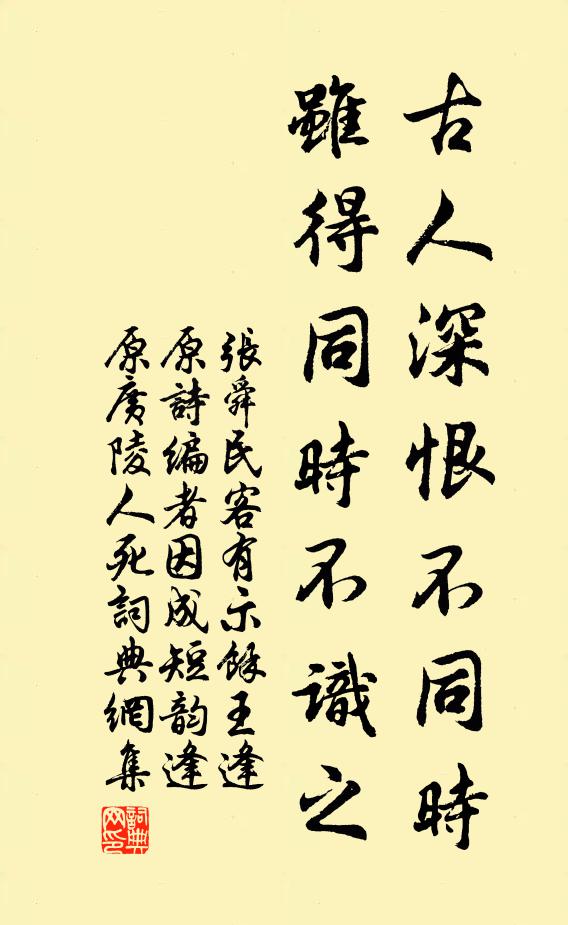 古人深恨不同時
雖得同時不識之
張舜民客有示餘王逢
原詩編者因成短韵逢
原廣陵人死詞典網集
詞典網印